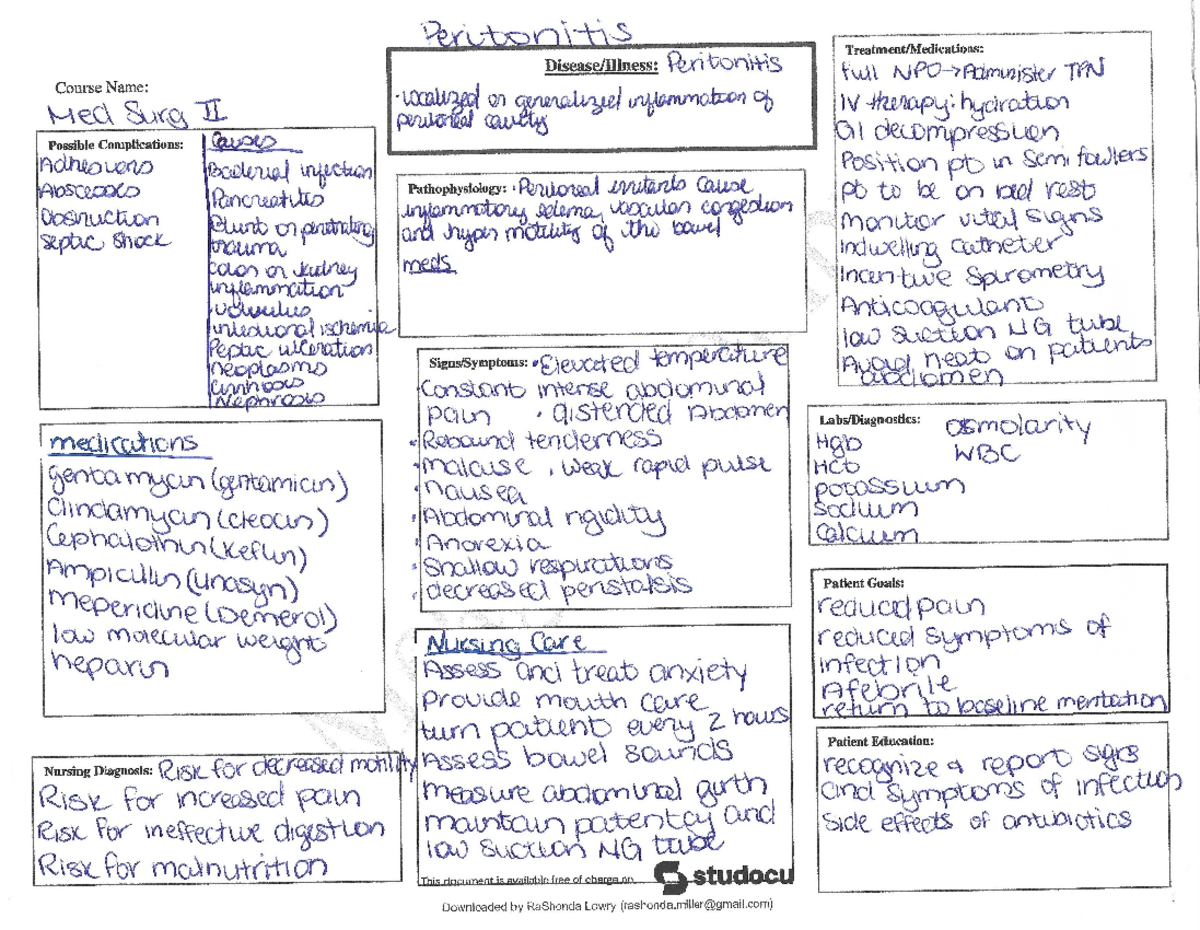 Peritonitis
Course Name:
Med Surg II
Disease/Illness: Peritonitis
·Localized or generalized inflammation of
peritoneal cavity
Possible Complications:
Adhesions
Abscesses
Obstruction
Septic Shock
Causes
Bacterial infection
Pancreatitis
Blunt or penetrating
trauma
colon or kidney
inflammation
volvulus
intestional ischemia
Peptic ulceration
neoplasms
cirrhosis
Nephrosis
Pathophysiology: ·Peritoneal irritants cause
inflammatory edema, vascular congestion
and hyper motility of the bowel
meds
Treatment/Medications:
full NPO→Administer TPN
IV therapy: hydration
GI decompression
Position pt in semi fowlers
pt to be on bed rest
Monitor vital signs
Indwelling catheter
Incentive Spirometry
Anticoagulant
low suction NG tube
Avoid heat on patients
abdomen
Signs/Symptoms: ·Elevated temperature
Constant intense abdominal
pain · distended Abdomen
·Rebound tenderness
·malaise · weak rapid pulse
·nausea
·Abdominal rigidity
·Anorexia
·Shallow respirations
·decreased peristalsis
Labs/Diagnostics:
Hgb
Hct
potassium
Sodium
Calcium
osmolarity
WBC
medications
gentamycin (gentamicin)
Clindamycin (cleocin)
Cephalothin (Keflin)
Ampicillin (unasyn)
Meperidine (Demerol)
low molecular weight
heparin
Nursing Care
Assess and treat anxiety
provide mouth care
turn patient every 2 hours
Assess bowel sounds
measure abdominal girth
maintain patentcy and
low suction NG tube
Patient Goals:
reduced pain
reduced symptoms of
infection
Afebrile
return to baseline mentation
Nursing Diagnosis: Risk for decreased motility
Risk for increased pain
Risk for ineffective digestion
Risk for malnutrition
Patient Education:
recognize & report signs
and symptoms of infection
Side effects of antibiotics
This document is available free of charge on
studocu
Downloaded by RaShonda Lowry (rashonda.miller@gmail.com)